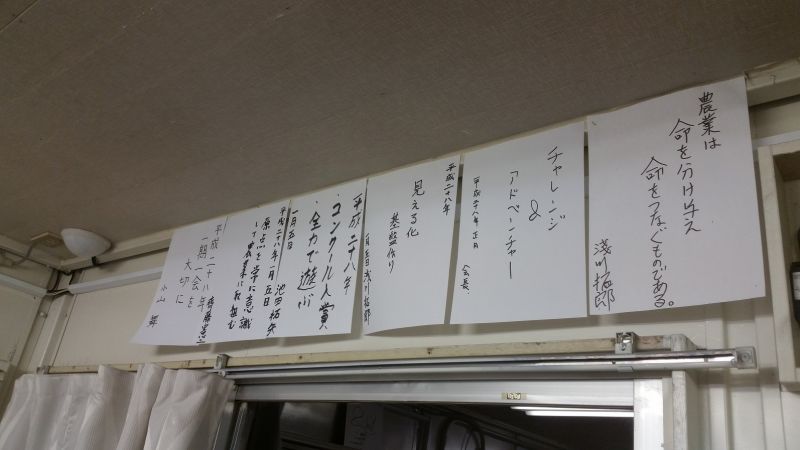 農業は
命を分け与え
命をつなぐものである。
淺川拓郎
チャレンジ
&
アドベンチャー
平成廿八年正月
会長
平成二十八年
見える化
基盤作り
一月五日 浅川拓郎
平成二十八年
・コンクール入賞
・全力で遊ぶ
一月五日
平成二十八年一月五日
原点を常に意識
して農業に取組む
平成二十八年
一期一会を
大切に
小山